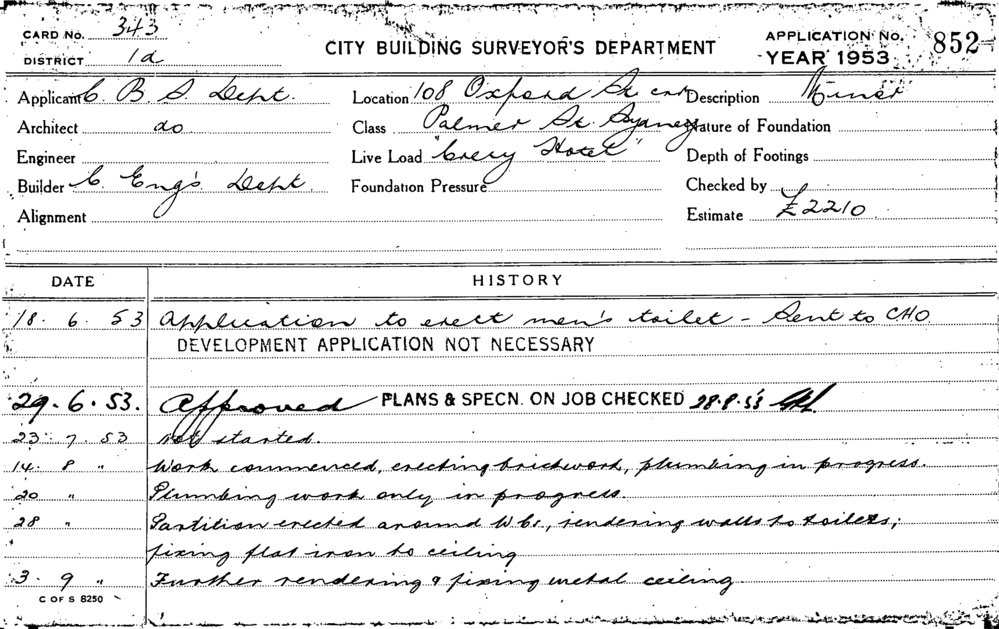 CARD No. 343
DISTRICT 1a
CITY BUILDING SURVEYOR'S DEPARTMENT
APPLICATION No. 852
YEAR 1953
Applicant C. B. S. Dept. Location 108 Oxford St cnr Description Minor
Architect do Class Palmer St. Sydney Nature of Foundation
Engineer Live Load "Crecy Hotel" Depth of Footings
Builder C. Eng's. Dept. Foundation Pressure Checked by
Alignment Estimate £2210
DATE HISTORY
18. 6. 53 Application to erect men's toilet - Sent to CHO
DEVELOPMENT APPLICATION NOT NECESSARY
29. 6. 53. Approved PLANS & SPECN. ON JOB CHECKED 28.8.53
23. 7. 53 Not started.
14. 8 " Work commenced, erecting brickwork, plumbing in progress.
20 " Plumbing work only in progress.
28 " Partition erected around W.C's., rendering walls to toilets;
fixing flat iron to ceiling
3. 9 " Further rendering & fixing metal ceiling
C OF S 8250